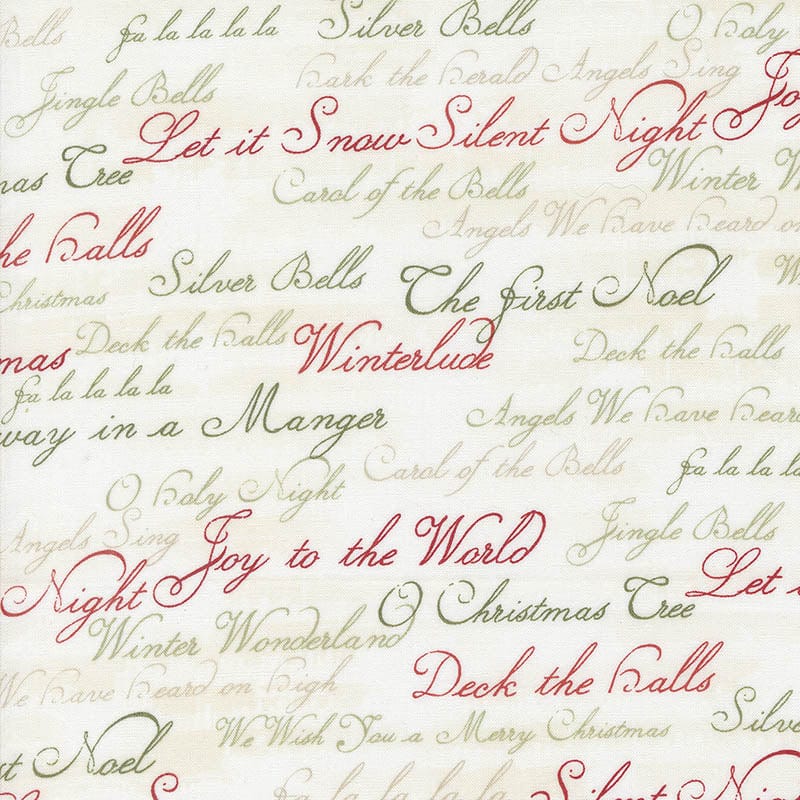 Bells fa la la la la Silver Bells O holy
Jingle Bells hark the herald Angels Sing Joy
Let it Snow Silent Night
mas Tree Carol of the Bells Winter W
he halls Angels We have heard on
Christmas Silver Bells The first Noel W
mas Deck the halls Winterlude Deck the halls
fa la la la la
way in a Manger Angels We have heard
O holy Night Carol of the Bells fa la la la
Angels Sing Joy to the World Jingle Bells
Night O Christmas Tree Let i
Winter Wonderland
We have heard on high Deck the halls
We Wish You a Merry Christmas Silve
st Noel
S fa la la la la Silent Night